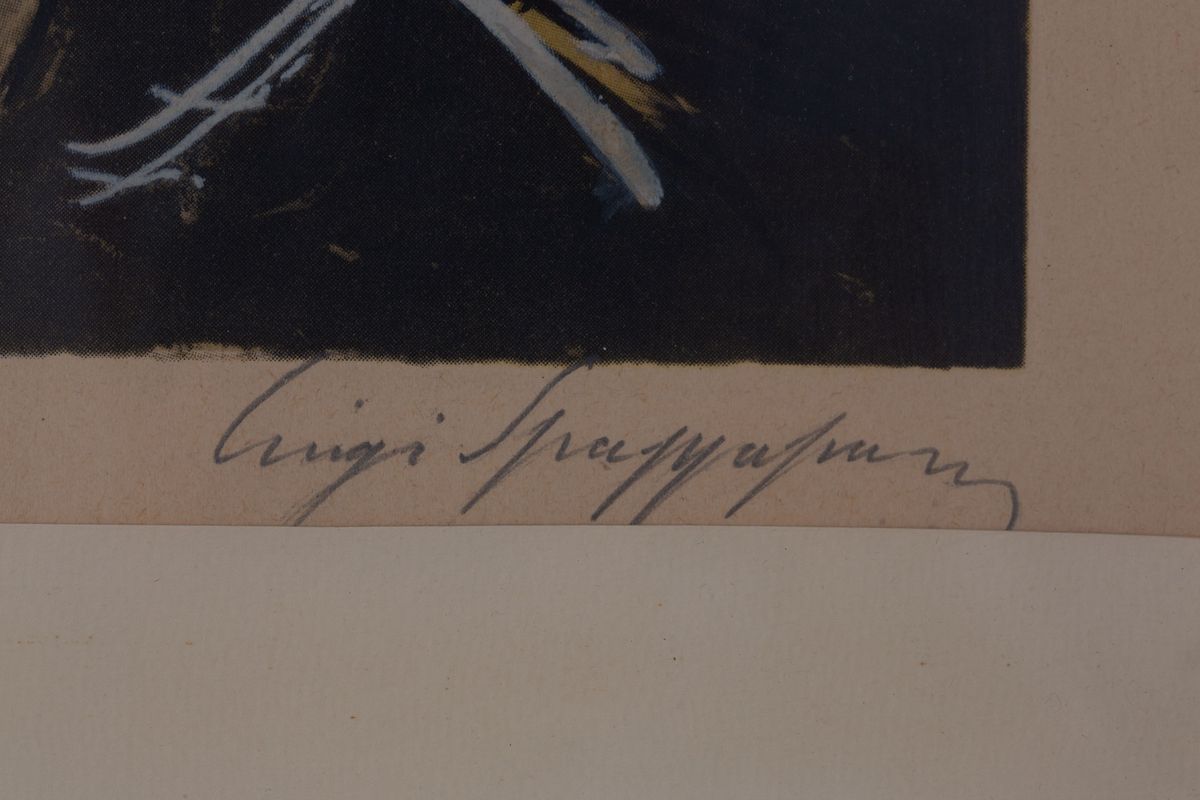 Luigi Spazzapan